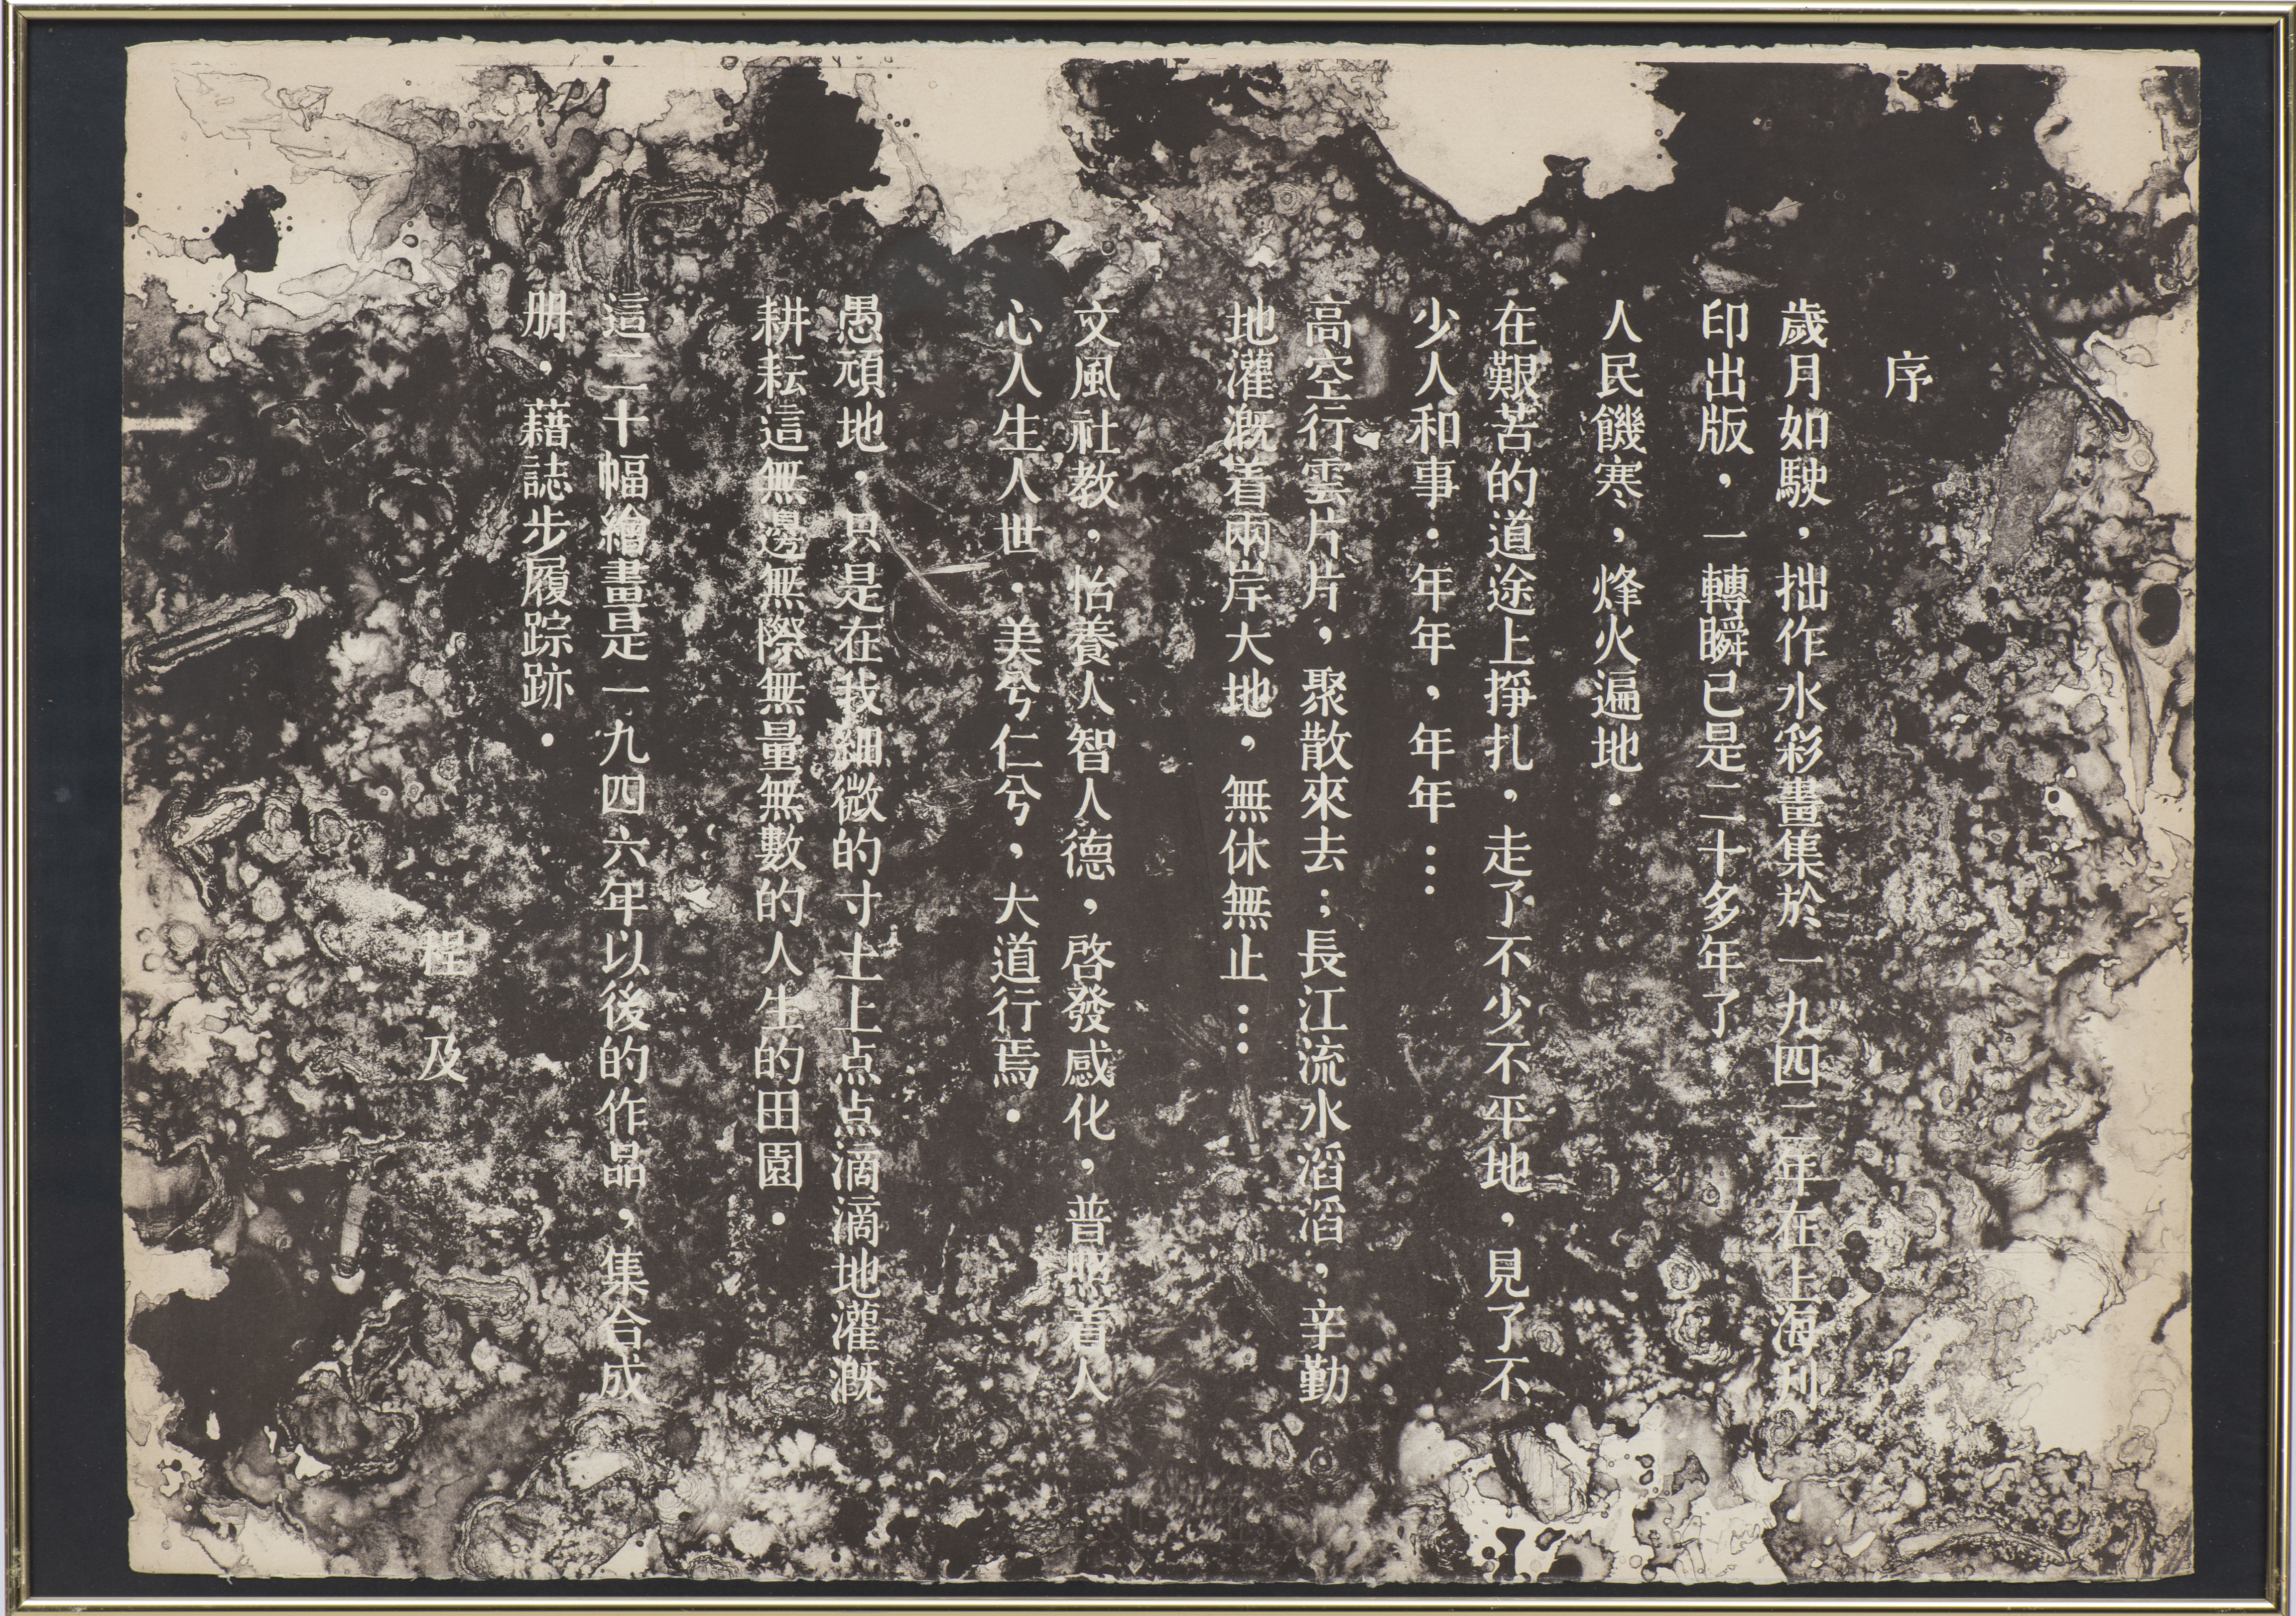 序
歲月如駛，拙作水彩畫集於一九四二年在上海刋
印出版，一轉瞬已是二十多年了．
人民饑寒，烽火遍地．
在艱苦的道途上掙扎，走了不少不平地，見了不
少人和事．年年，年年…
高空行雲片片，聚散來去；長江流水滔滔，辛勤
地灌溉着兩岸大地，無休無止…
文風社教，怡養人智人德，啓發感化，普照着人
心人生人世．美兮仁兮，大道行焉．
愚頑地，只是在我細微的寸土上点点滴滴地灌溉
耕耘這無邊無際無量無數的人生的田園．
這二十幅繪畫是一九四六年以後的作品，集合成
册．藉誌步履踪跡．
程及